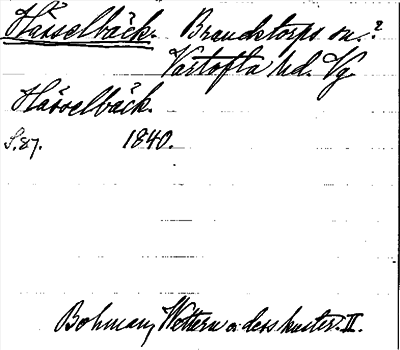 Hässelbäck. Brandstorps sn.?
Vartofta hd. Vg.
Hässelbäck.
S.87. 1840.
Bohman, Wettern o dess kuster. II.